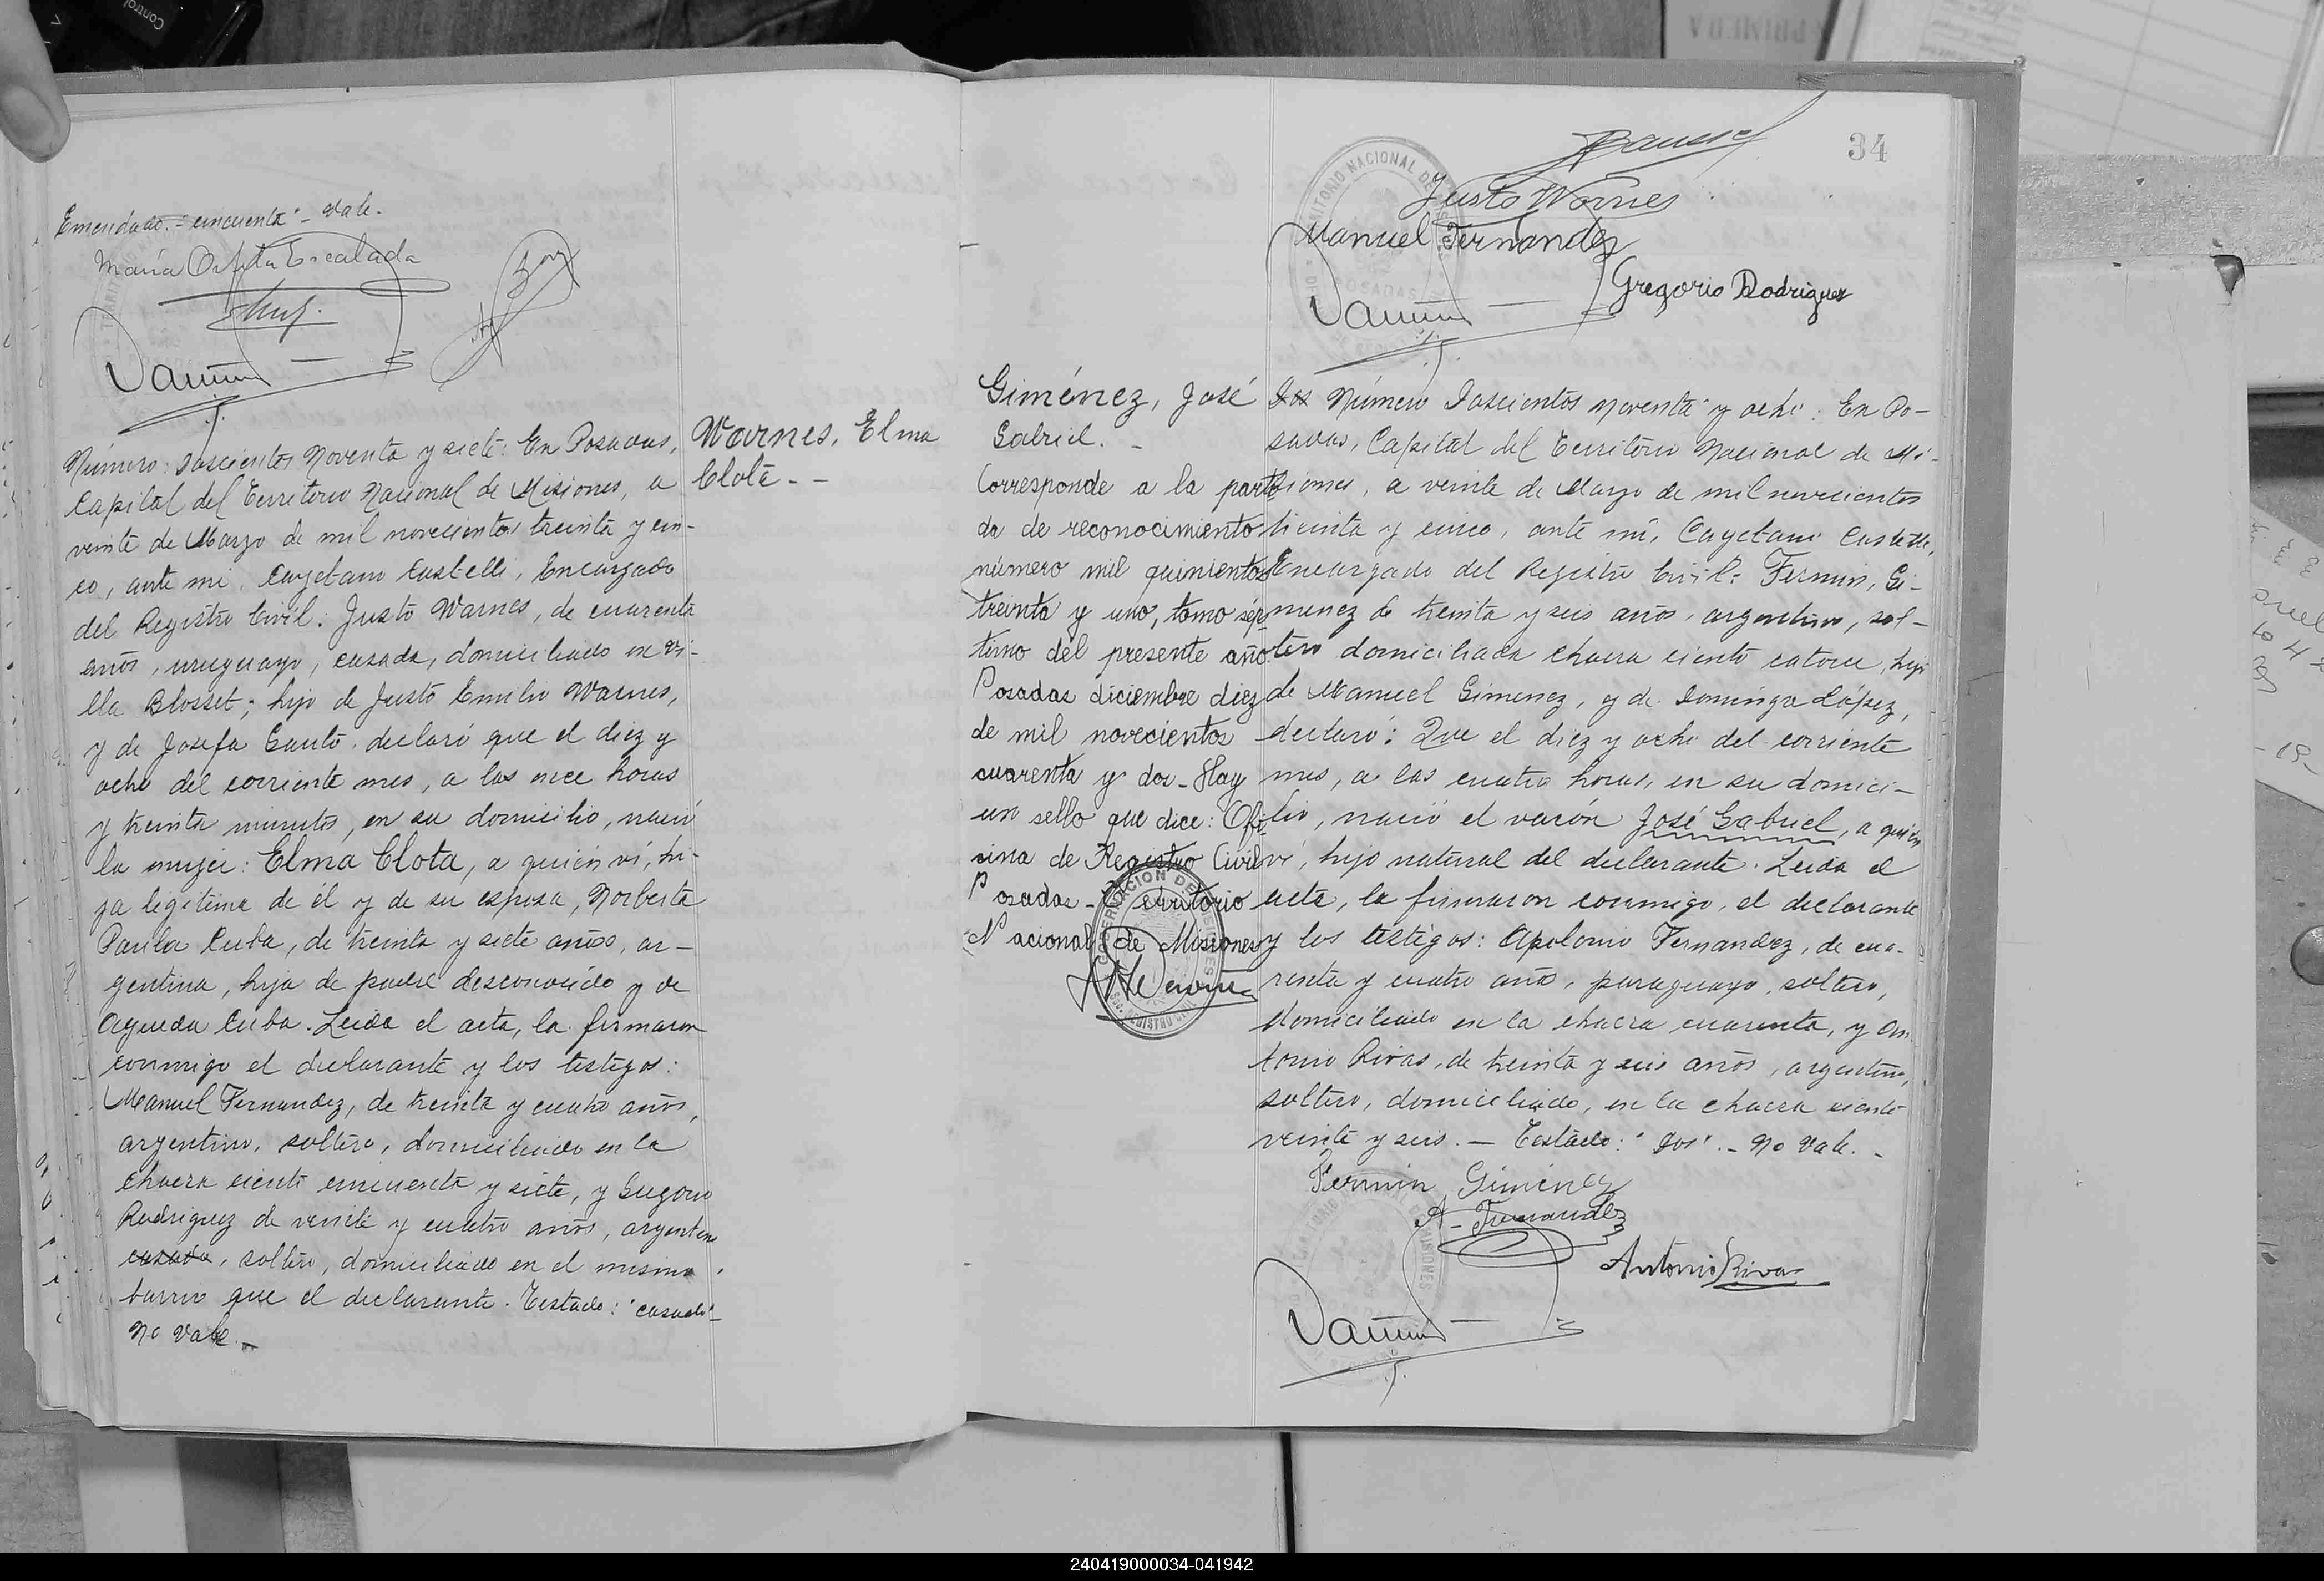 Emendado: "cincuenta" - Vale.
María Escalada
Número: Doscientos Noventa y siete: En Posadas,
Capital del Territorio Nacional de Misiones, a
veinte de Marzo de mil novecientos treinta y cin-
co, ante mi, Cayetano Castelli, Encargado
del Registro Civil: Justo Warnes, de cuarenta
años, uruguayo, casado, domiciliado en Vi-
lla Blosset; hijo de Justo Emilio Warnes,
y de Josefa Gauto, declaró que el diez y
ocho del corriente mes, a las once horas
y treinta minutos, en su domicilio, nació
la mujer: Elma Clota, a quién ví, hi-
ja legítima de él y de su esposa, Norberta
Paula Cuba, de treinta y siete años, ar-
gentina, hija de padre desconocido y de
Agueda Cuba. Leida el acta, la firmaron
conmigo el declarante y los testigos:
Manuel Fernandez, de treinta y cuatro años,
argentino, soltero, domiciliado en la
chacra ciento cincuenta y siete, y Gregorio
Rodriguez de veinte y cuatro años, argentino
casado, soltero, domiciliado en el mismo
barrio que el declarante. Testado: "casado"-
No Vale.-
Warnes, Elma
Clota.--
34
Justo Warnes
Manuel Fernandez
Gregorio Rodriguez
Giménez, José
Gabriel.-
Corresponde a la parti
da de reconocimiento
número mil quinientos
treinta y uno, tomo sép-
timo del presente año
Posadas diciembre diez
de mil novecientos
cuarenta y dos - Hay
un sello que dice: Ofi-
cina de Registro Civil
Posadas - Territorio
Nacional de Misiones
Dos Número Doscientos noventa y ocho: En Po-
sadas, Capital del Territorio Nacional de Mi-
siones, a veinte de Marzo de mil novecientos
treinta y cinco, ante mí, Cayetano Castelli,
Encargado del Registro Civil: Fermin, Gi-
menez de treinta y seis años, argentino, sol-
tero domiciliado chacra ciento catorce, hijo
de Manuel Gimenez, y de Dominga López,
declaró: Que el diez y ocho del corriente
mes, a las cuatro horas, en su domici-
lio, nació el varón José Gabriel, a quién
ví, hijo natural del declarante. Leida el
acta, la firmaron conmigo, el declarante
y los testigos: Apolonio Fernandez, de cua-
renta y cuatro años, paraguayo, soltero,
domiciliado en la chacra cuarenta, y An
tonio Rivas, de treinta y seis años, argentino,
soltero, domiciliado, en la chacra ciento
veinte y seis. - Testado: "Dos". - No Vale. -
Fermin Giménez
A. Fernandez
Antonio Rivas
240419000034-041942